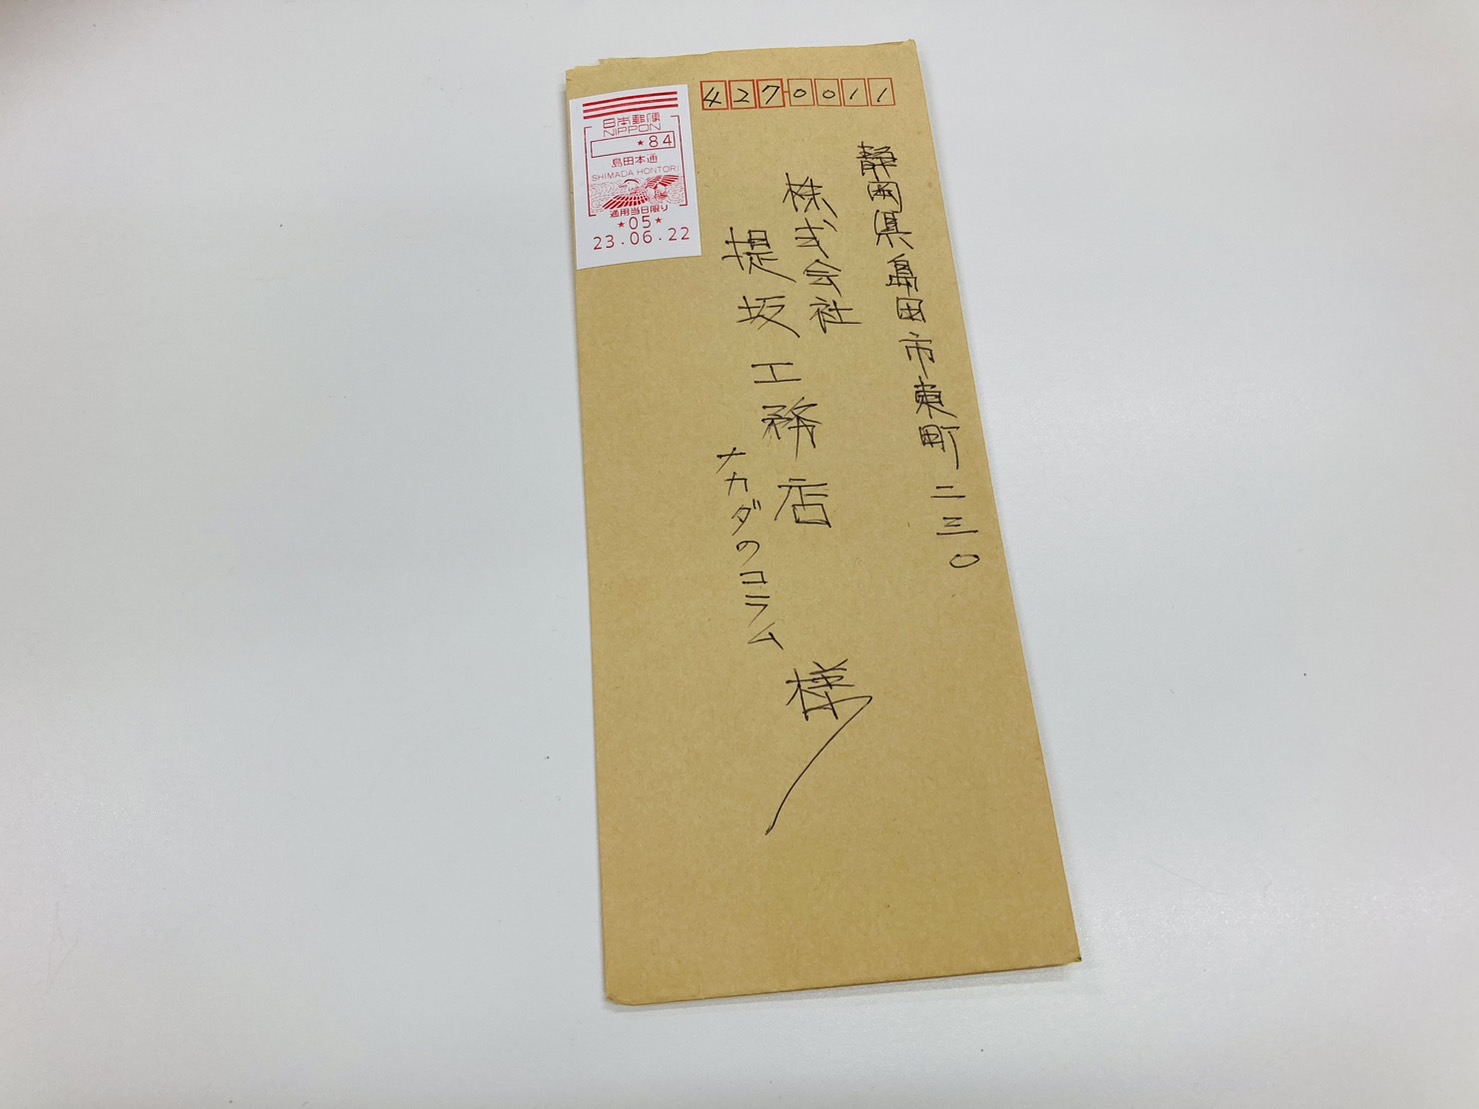 4270011
静岡県島田市東町二三〇
株式会社
提坂工務店
ナカダのコラム
様
日本郵便
NIPPON
★84
島田本通
SHIMADA HONTORI
通用当日限り
★05★
23.06.22